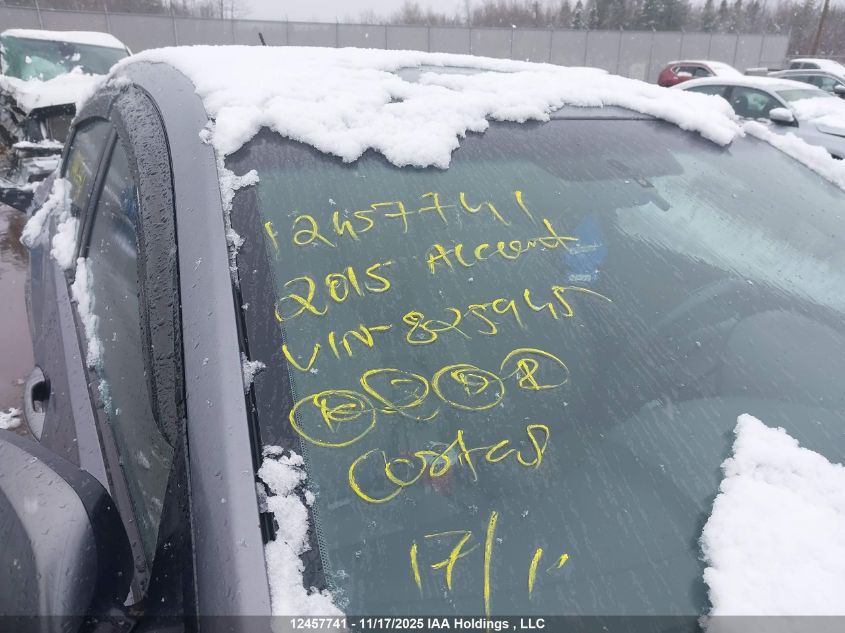 12457741
2015 Accent
VIN-825945
K - D R
17/1
12457741 - 11/17/2025 IAA Holdings , LLC